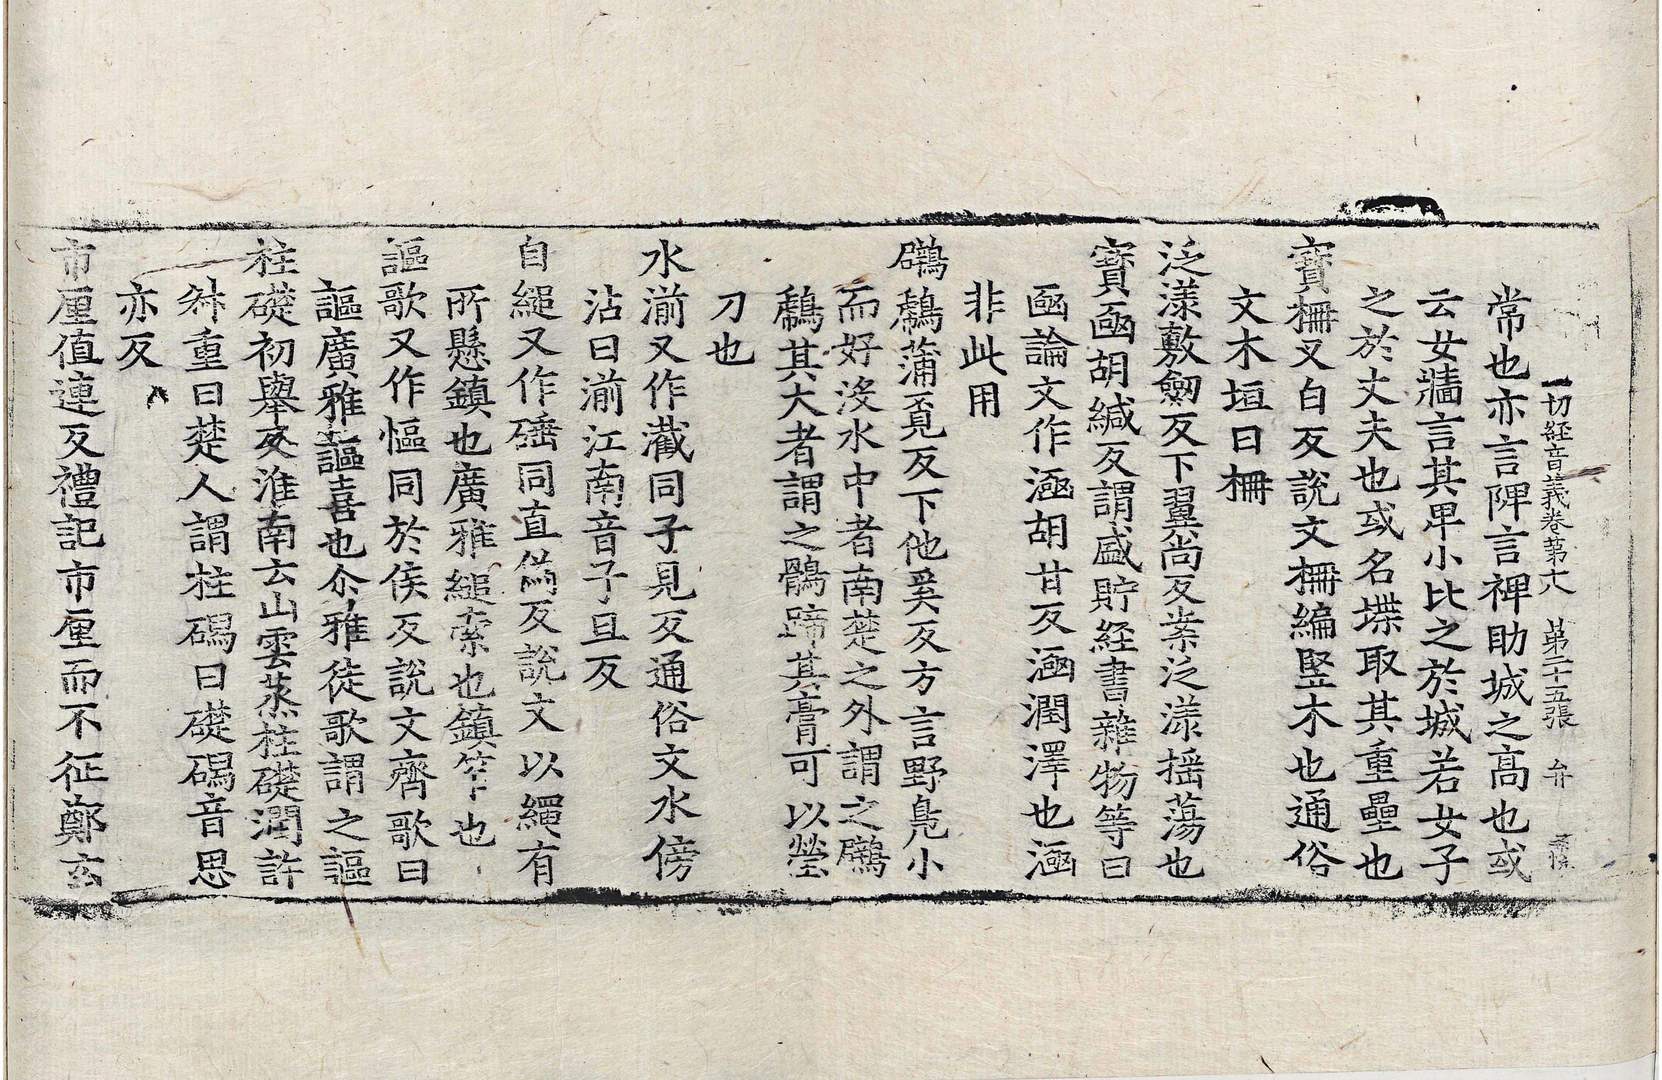 一切経音義卷第十八　第二十五張　弁
常也亦言陴言裨助城之高也或
云女牆言其卑小比之於城若女子
之於丈夫也或名堞取其重疊也
寶柵又白反說文柵編竪木也通俗
文木垣曰柵
泛漾敷劒反下翼尚反業泛漾揺蕩也
寶凾胡緘反謂盛貯経書雜物等曰
凾論文作涵胡甘反涵潤澤也涵
非此用
鷿鷉蒲覓反下他奚反方言野鳧小
而好没水中者南楚之外謂之鷿
鷉其大者謂之鶻蹏其膏可以瑩
刀也
水湔又作灒同子見反通俗文水傍
沾曰湔江南音子旦反
自縋又作硾同直偽反說文以繩有
所懸鎮也廣雅縋索也鎮笮也
謳歌又作慪同於侯反說文齊歌曰
謳廣雅謳喜也尒雅徒歌謂之謳
柱礎初舉反淮南云山雲蒸柱礎潤許
舛重曰楚人謂柱碣曰礎碣音思
亦反
市厘值連反禮記市厘而不征鄭玄